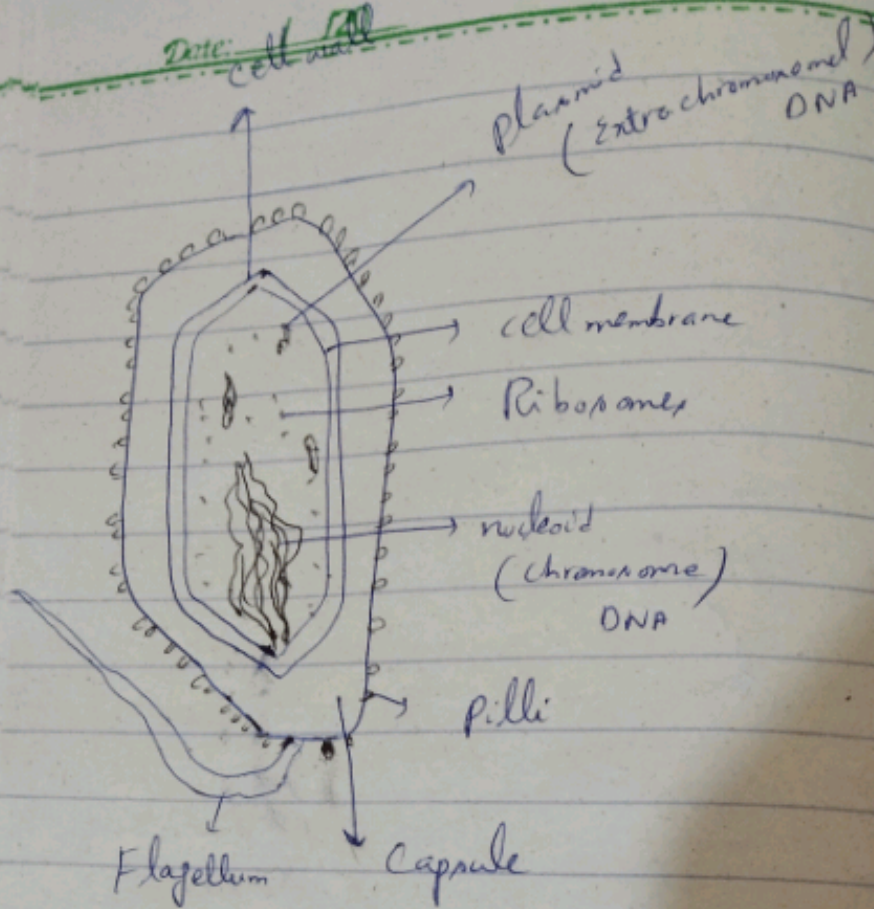 Date:
cell wall
plasmid
(Extrachromosomel)
DNA
cell membrane
Ribosomes
nucleoid
(chromosome)
DNA
pilli
Flagellum
Capsule